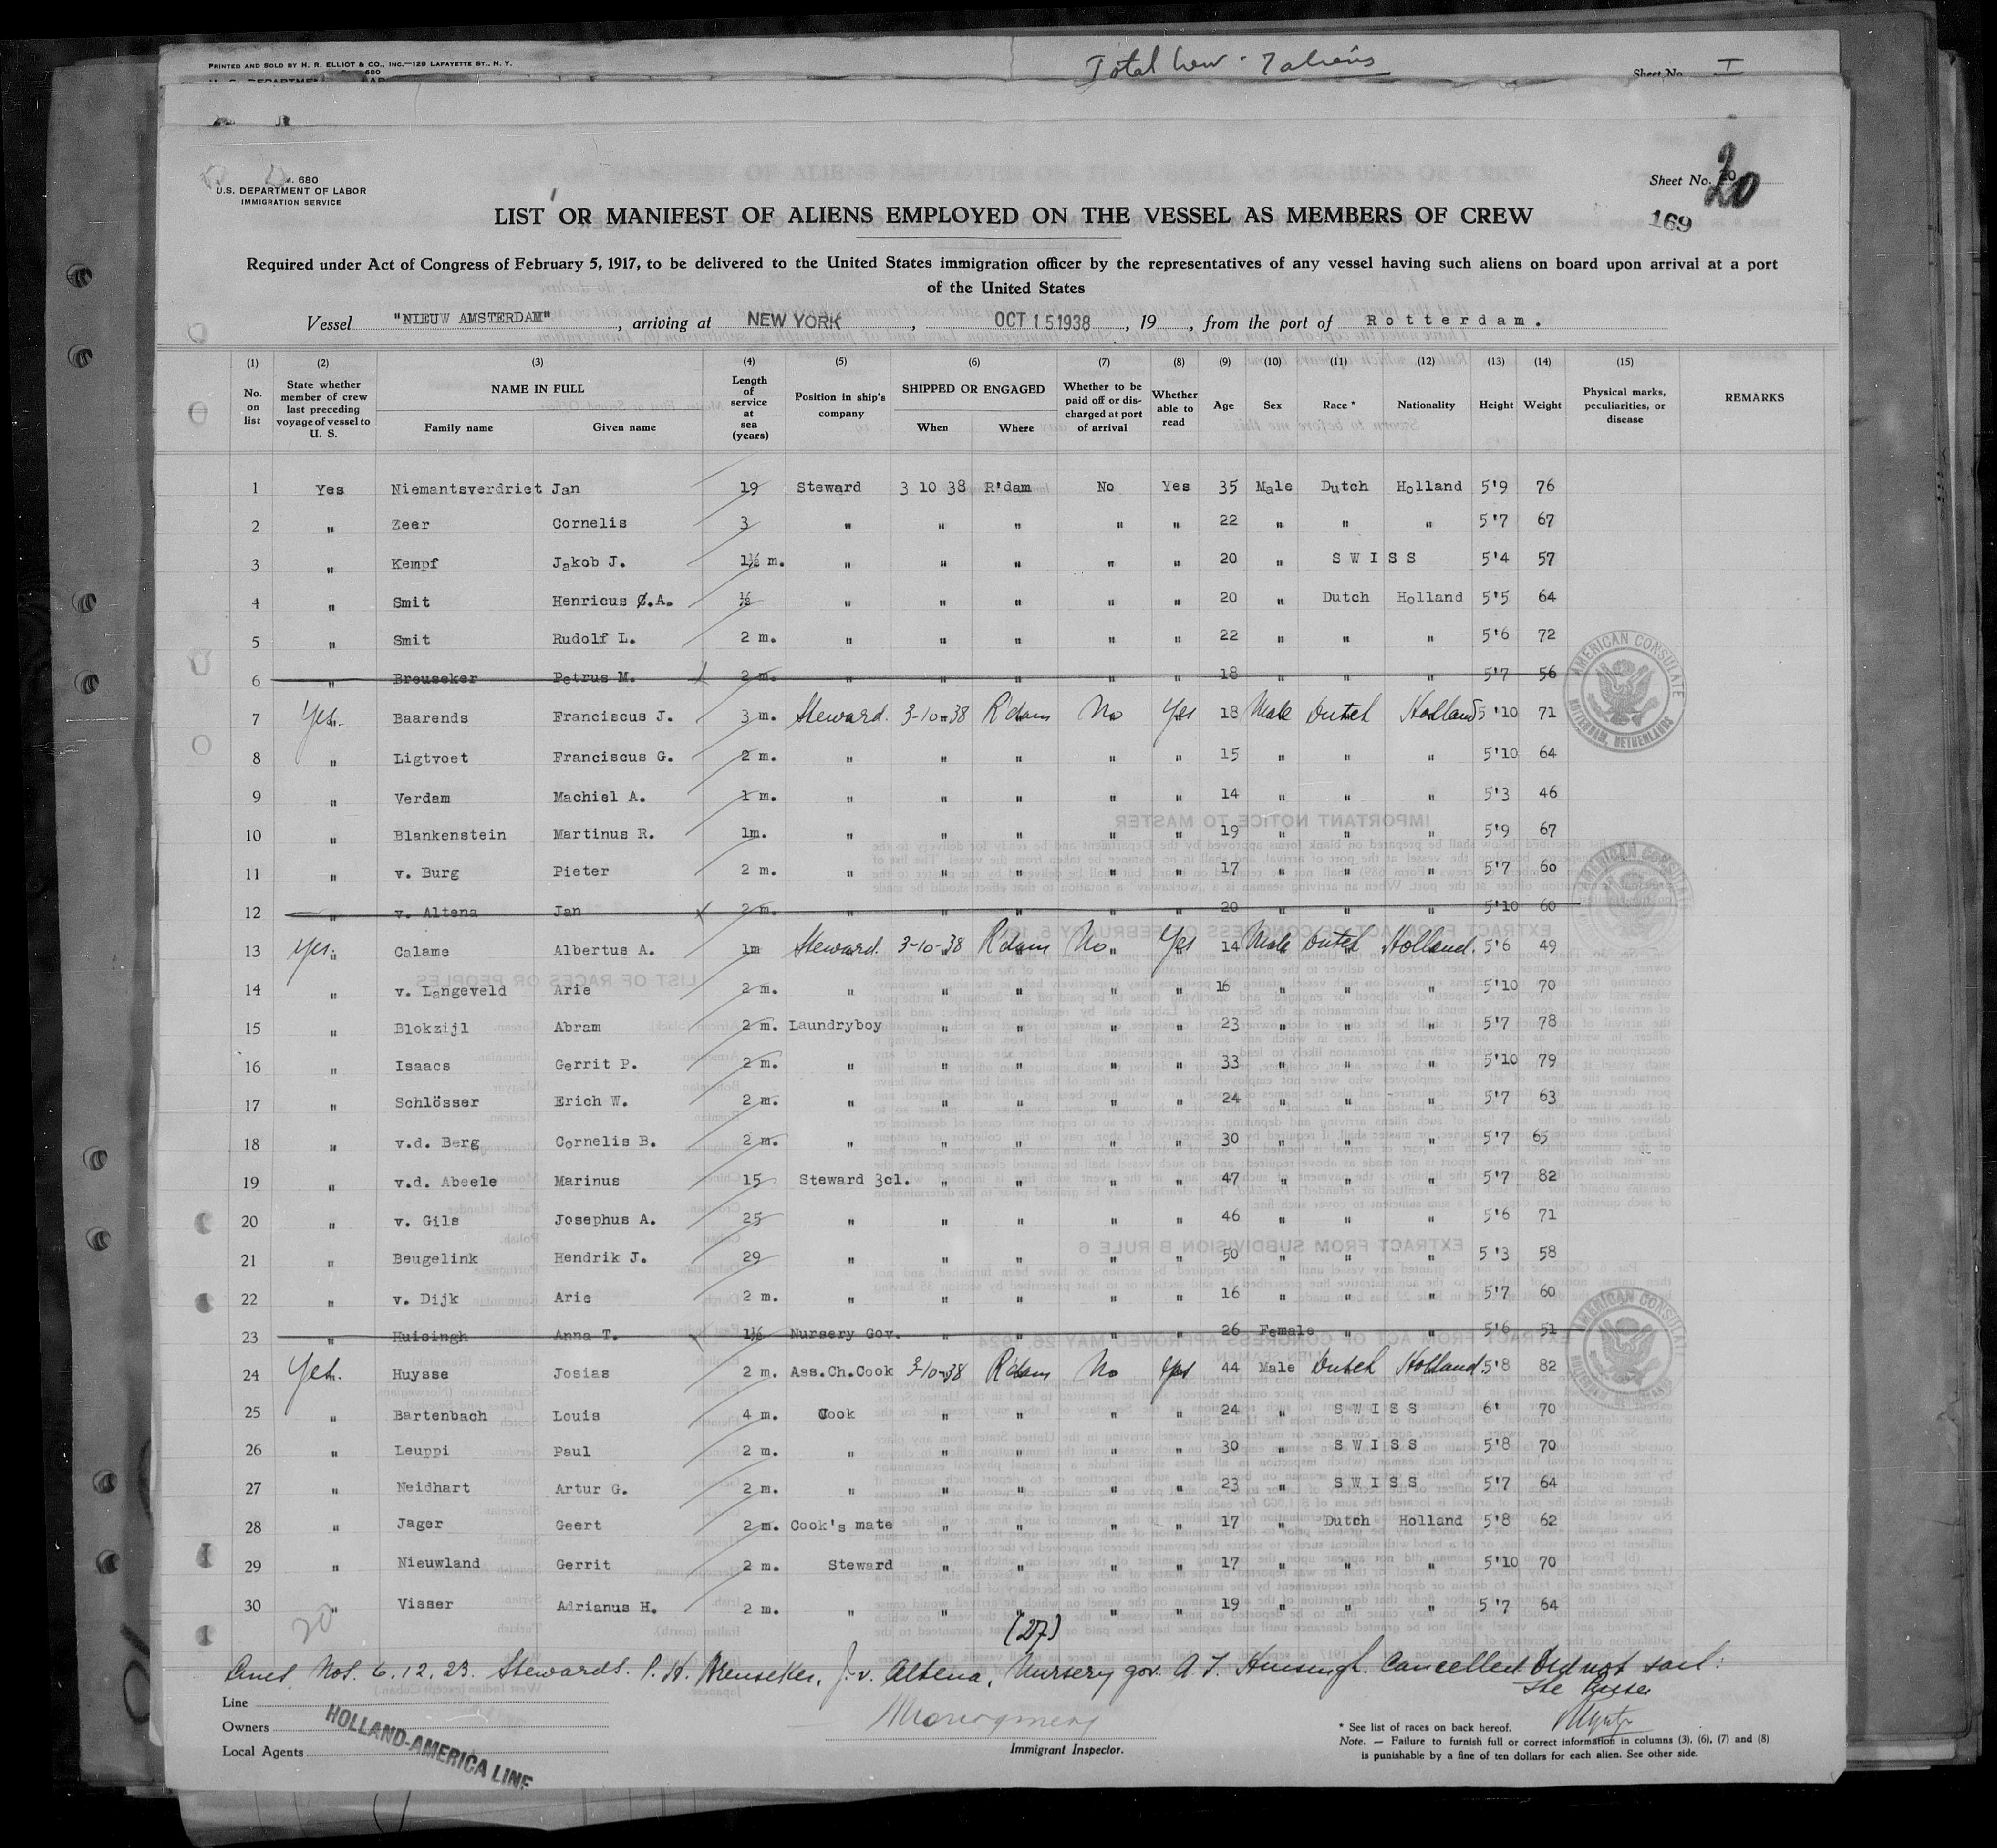 PRINTED AND SOLD BY H. R. ELLIOT & CO., INC.—129 LAFAYETTE ST., N. Y.
680
Total Crew - 7 aliens
Sheet No. I
680
U.S. DEPARTMENT OF LABOR
IMMIGRATION SERVICE
Sheet No. 20
20
169
LIST OR MANIFEST OF ALIENS EMPLOYED ON THE VESSEL AS MEMBERS OF CREW
Required under Act of Congress of February 5, 1917, to be delivered to the United States immigration officer by the representatives of any vessel having such aliens on board upon arrival at a port
of the United States
Vessel "NIEUW AMSTERDAM", arriving at NEW YORK, OCT 15 1938, 19 , from the port of Rotterdam.
(1) (2) (3) (4) (5) (6) (7) (8) (9) (10) (11) (12) (13) (14) (15)
No. on list State whether member of crew last preceding voyage of vessel to U. S. NAME IN FULL Family name Given name Length of service at sea (years) Position in ship's company SHIPPED OR ENGAGED When Where Whether to be paid off or discharged at port of arrival Whether able to read Age Sex Race * Nationality Height Weight Physical marks, peculiarities, or disease REMARKS
1 Yes Niemantsverdriet Jan 19 Steward 3 10 38 R'dam No Yes 35 Male Dutch Holland 5'9 76
2 " Zeer Cornelis 3 " " " " " 22 " " " 5'7 67
3 " Kempf Jakob J. 1½ m. " " " " " 20 " SWISS 5'4 57
4 " Smit Henricus Ø.A. ½ " " " " " 20 " Dutch Holland 5'5 64
5 " Smit Rudolf L. 2 m. " " " " " 22 " " " 5'6 72
6 " Breuseker Petrus M. 2 m. " " " " " 18 " " " 5'7 56
7 Yes. Baarends Franciscus J. 3 m. Steward. 3-10-38 R'dam No Yes 18 Male Dutch Holland 5'10 71
8 " Ligtvoet Franciscus G. 2 m. " " " " " 15 " " " 5'10 64
9 " Verdam Machiel A. 1 m. " " " " " 14 " " " 5'3 46
10 " Blankenstein Martinus R. 1m. " " " " " 19 " " " 5'9 67
11 " v. Burg Pieter 2 m. " " " " " 17 " " " 5'7 60
12 " v. Altena Jan 2 m. " " " " " 20 " " " 5'10 60
13 Yes. Calame Albertus A. 1m Steward. 3-10-38 R'dam No Yes 14 Male Dutch Holland. 5'6 49
14 " v. Langeveld Arie 2 m. " " " " " 16 " " " 5'10 70
15 " Blokzijl Abram 2 m. Laundryboy " " " " 23 " " " 5'7 78
16 " Isaacs Gerrit P. 2 m. " " " " " 33 " " " 5'10 79
17 " Schlösser Erich W. 2 m. " " " " " 24 " " " 5'7 63
18 " v.d. Berg Cornelis B. 2 m. " " " " " 30 " " " 5'7 65
19 " v.d. Abeele Marinus 15 Steward 3cl. " " " " 47 " " " 5'7 82
20 " v. Gils Josephus A. 25 " " " " " 46 " " " 5'6 71
21 " Beugelink Hendrik J. 29 " " " " " 50 " " " 5'3 58
22 " v. Dijk Arie 2 m. " " " " " 16 " " " 5'7 60
23 " Huisingh Anna T. 1½ Nursery Gov. " " " " 26 Female " " 5'6 51
24 Yes. Huysse Josias 2 m. Ass.Ch.Cook 3-10-38 R'dam No Yes 44 Male Dutch Holland 5'8 82
25 " Bartenbach Louis 4 m. Cook " " " " 24 " SWISS 6' 70
26 " Leuppi Paul 2 m. " " " " " 30 " SWISS 5'8 70
27 " Neidhart Artur G. 2 m. " " " " " 23 " SWISS 5'7 64
28 " Jager Geert 2 m. Cook's mate " " " " 17 " Dutch Holland 5'8 62
29 " Nieuwland Gerrit 2 m. Steward " " " " 17 " " " 5'10 70
30 " Visser Adrianus H. 2 m. " " " " " 19 " " " 5'7 64
20
(27)
Nos. 6, 12, 23. Stewards. P. H. Breuseker, J. v. Altena, Nursery gov. A T. Huisingh. Cancelled. Did not sail.
The
Line
Owners
Local Agents
HOLLAND-AMERICA LINE
Immigrant Inspector.
* See list of races on back hereof.
Note. — Failure to furnish full or correct information in columns (3), (6), (7) and (8)
is punishable by a fine of ten dollars for each alien. See other side.
AMERICAN CONSULATE
ROTTERDAM, NETHERLANDS
AMERICAN CONSULATE
AMERICAN CONSULATE